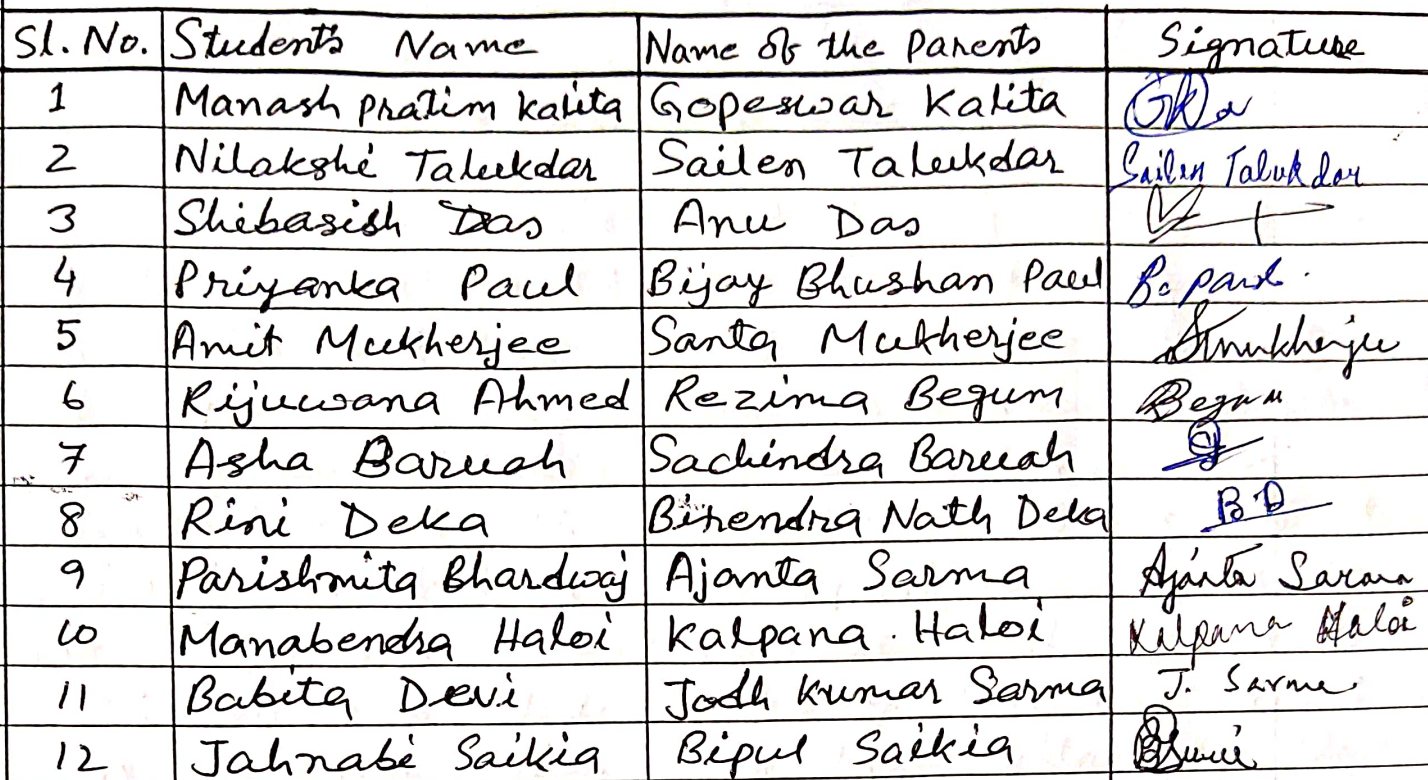 Sl. No. Student's Name Name of the Parents Signature
1 Manash pratim kalita Gopeswar Kalita
2 Nilakshi Talukdar Sailen Talukdar Sailen Talukdar
3 Shibasish Das Anu Das
4 Priyanka Paul Bijay Bhushan Paul B. paul.
5 Amit Mukherjee Santa Mukherjee Smukherjee
6 Rijuwana Ahmed Rezima Begum Begum
7 Asha Baruah Sachindra Baruah
8 Rini Deka Birendra Nath Deka B D
9 Parishmita Bhardwaj Ajanta Sarma Ajanta Sarma
10 Manabendra Haloi Kalpana Haloi Kalpana Haloi
11 Babita Devi Jodh Kumar Sarma J. Sarma
12 Jahnabi Saikia Bipul Saikia